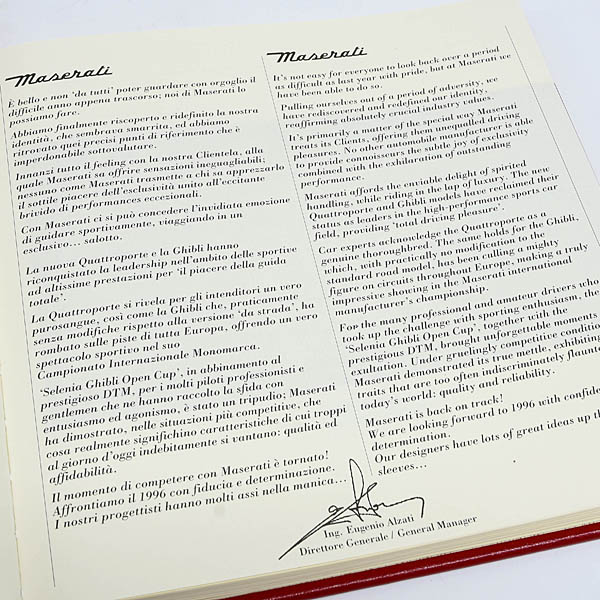 Maserati
È bello e non 'da tutti' poter guardare con orgoglio il
difficile anno appena trascorso; noi di Maserati lo
possiamo fare.
Abbiamo finalmente riscoperto e ridefinito la nostra
identità, che sembrava smarrita, ed abbiamo
ritrovato quei precisi punti di riferimento che è
imperdonabile sottovalutare.
Innanzi tutto il feeling con la nostra Clientela, alla
quale Maserati sa offrire sensazioni ineguagliabili;
nessuno come Maserati trasmette a chi sa apprezzarlo
il sottile piacere dell'esclusività unito all'eccitante
brivido di performances eccezionali.
Con Maserati ci si può concedere l'invidiata emozione
di guidare sportivamente, viaggiando in un
esclusivo... salotto.
La nuova Quattroporte e la Ghibli hanno
riconquistato la leadership nell'ambito delle sportive
ad altissime prestazioni per 'il piacere della guida
totale'.
La Quattroporte si rivela per gli intenditori un vero
purosangue, così come la Ghibli che, praticamente
senza modifiche rispetto alla versione 'da strada', ha
rombato sulle piste di tutta Europa, offrendo un vero
spettacolo sportivo nel suo
Campionato Internazionale Monomarca.
'Selenia Ghibli Open Cup', in abbinamento al
prestigioso DTM, per i molti piloti professionisti e
gentlemen che ne hanno raccolto la sfida con
entusiasmo ed agonismo, è stato un tripudio; Maserati
ha dimostrato, nelle situazioni più competitive, che
cosa realmente significhino caratteristiche di cui troppi
al giorno d'oggi indebitamente si vantano: qualità ed
affidabilità.
Il momento di competere con Maserati è tornato!
Affrontiamo il 1996 con fiducia e determinazione.
I nostri progettisti hanno molti assi nella manica...
Maserati
It's not easy for everyone to look back over a period
as difficult as last year with pride, but at Maserati we
have been able to do so.
Pulling ourselves out of a period of adversity, we
have rediscovered and redefined our identity,
reaffirming absolutely crucial industry values.
It's primarily a matter of the special way Maserati
treats its Clients, offering them unequalled driving
pleasures. No other automobile manufacturer is able
to provide connoisseurs the subtle joy of exclusivity
combined with the exhilaration of outstanding
performance.
Maserati affords the enviable delight of spirited
handling, while riding in the lap of luxury. The new
Quattroporte and Ghibli models have reclaimed their
status as leaders in the high-performance sports car
field, providing 'total driving pleasure'.
Car experts acknowledge the Quattroporte as a
genuine thoroughbred. The same holds for the Ghibli,
which, with practically no modification to the
standard road model, has been culling a mighty
figure on circuits throughout Europe, making a truly
impressive showing in the Maserati international
manufacturer's championship.
For the many professional and amateur drivers who
took up the challenge with sporting enthusiasm, the
'Selenia Ghibli Open Cup', together with the
prestigious DTM, brought unforgettable moments
exultation. Under gruelingly competitive conditions
Maserati demonstrated its true mettle, exhibiting
traits that are too often indiscriminately flaunted
today's world: quality and reliability.
Maserati is back on track!
We are looking forward to 1996 with
determination.
Our designers have lots of great ideas up
sleeves...
Ing. Eugenio Alzati
Direttore Generale / General Manager